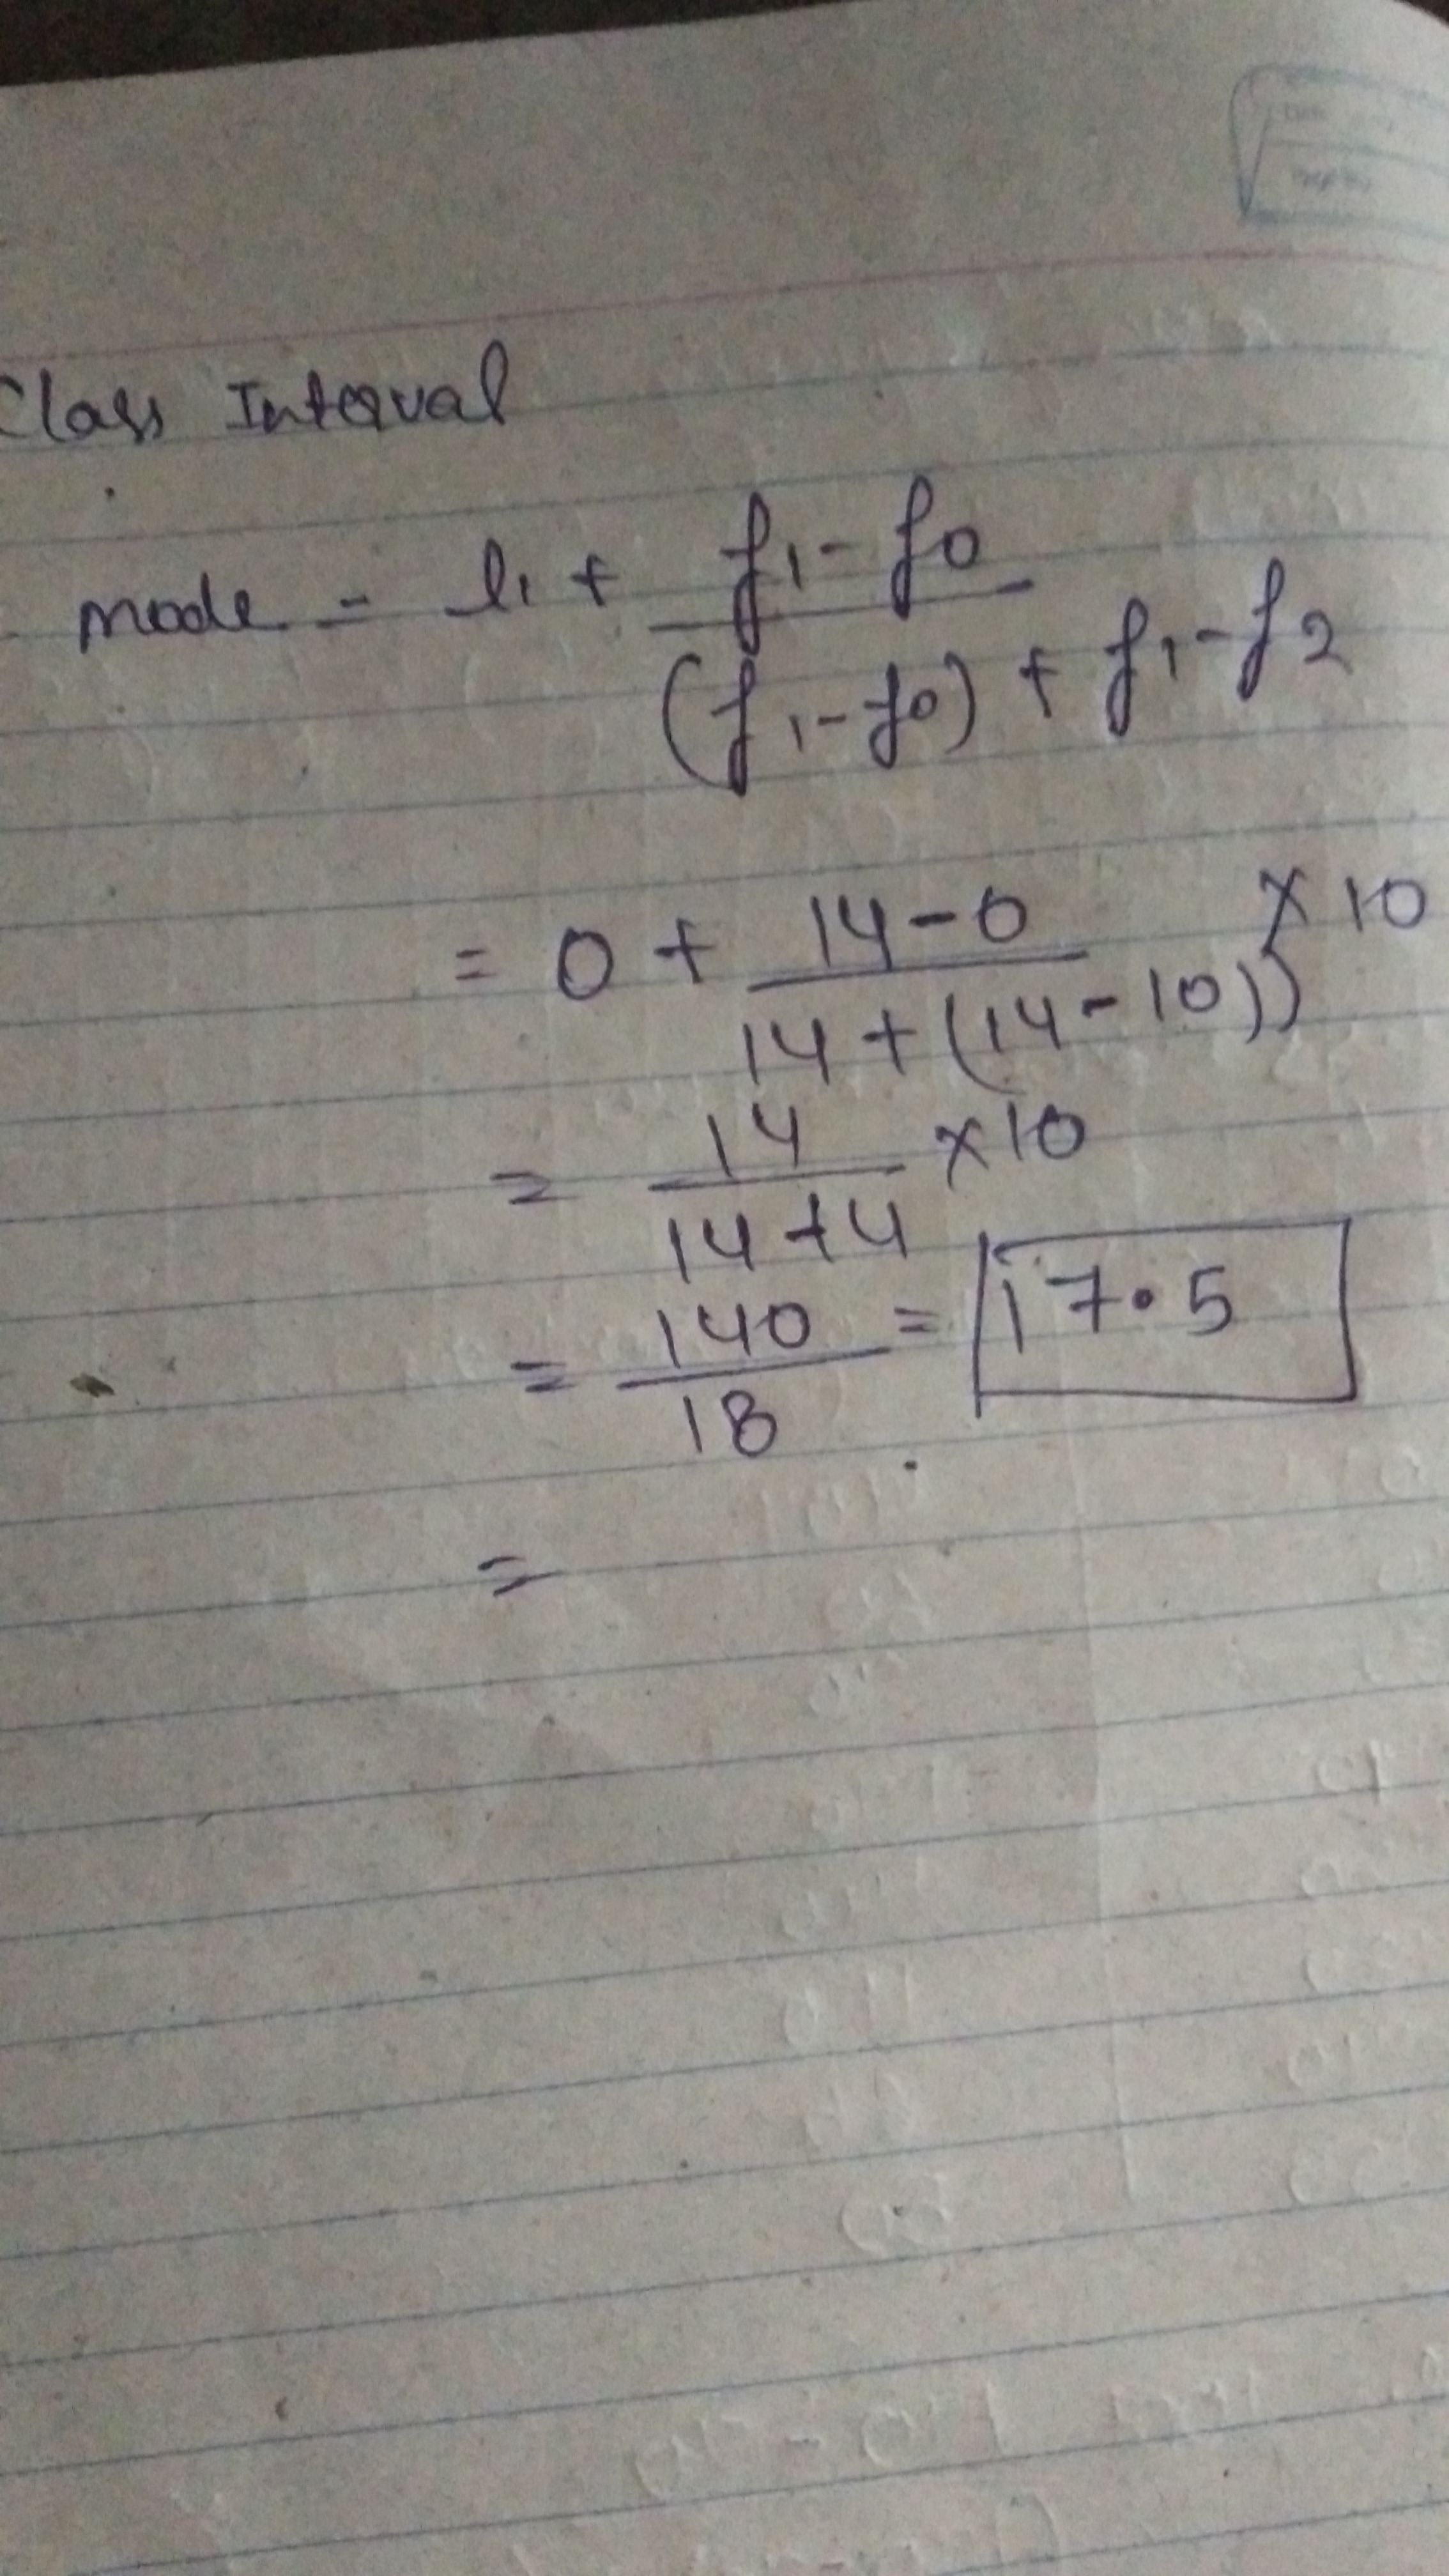 Class Interval
mode = l1 + f1 - f0
(f1 - f0) + f1 - f2
= 0 + 14 - 0 × 10
14 + (14 - 10))
= 14 × 10
14 + 4
= 140 = 17.5
18
=